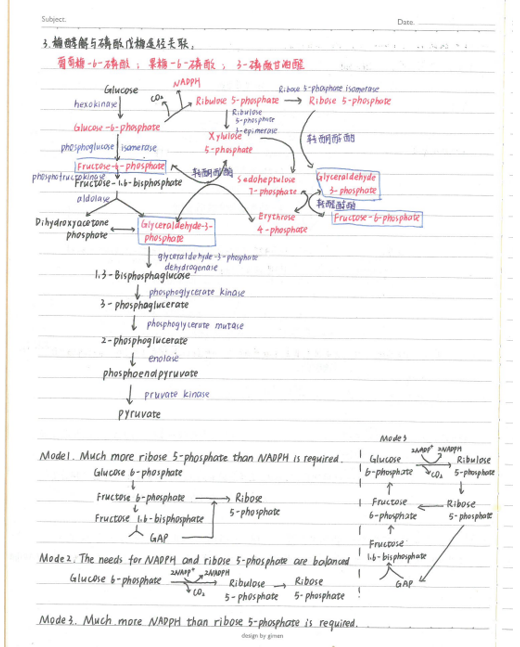 Subject:
Date.
3.糖酵解与磷酸戊糖途径关联.
葡萄糖-6-磷酸; 果糖-6-磷酸; 3-磷酸甘油醛
Glucose
NADPH
CO₂
hexokinase
Glucose-6-phosphate
Ribulose 5-phosphate
Ribose 5-phosphate isomerase
Ribose 5-phosphate
Ribulose
5-phosphate
3-epimerase
Xylulose
5-phosphate
转酮酶
phosphoglucose isomerase
Fructose-6-phosphate
phosphofructokinase
Fructose-1.6-bisphosphate
aldolase
Sedoheptulose
7-phosphate
Glyceraldehyde
3-phosphate
转醛酶
Dihydroxyacetone
phosphate
Glyceraldehyde-3-
phosphate
Erythrose
4-phosphate
Fructose-6-phosphate
glyceraldehyde-3-phosphate
dehydrogenase
1.3-Bisphosphaglucose
phosphoglycerate kinase
3-phosphaglucerate
phosphoglycerate mutase
2-phosphoglucerate
enolase
phosphoenolpyruvate
pruvate kinase
pyruvate
Mode1. Much more ribose 5-phosphate than NADPH is required.
Glucose 6-phosphate
Fructose 6-phosphate
Ribose
5-phosphate
Fructose 1.6-bisphosphate
GAP
Mode2. The needs for NADPH and ribose 5-phosphate are balanced
Glucose 6-phosphate
2NADP⁺
2NADPH
CO₂
Ribulose
5-phosphate
Ribose
5-phosphate
Mode3. Much more NADPH than ribose 5-phosphate is required.
Mode3
Glucose
6-phosphate
2NADP⁺
2NADPH
CO₂
Ribulose
5-phosphate
Fructose
6-phosphate
Ribose
5-phosphate
Fructose
1.6-bisphosphate
GAP
design by gimen